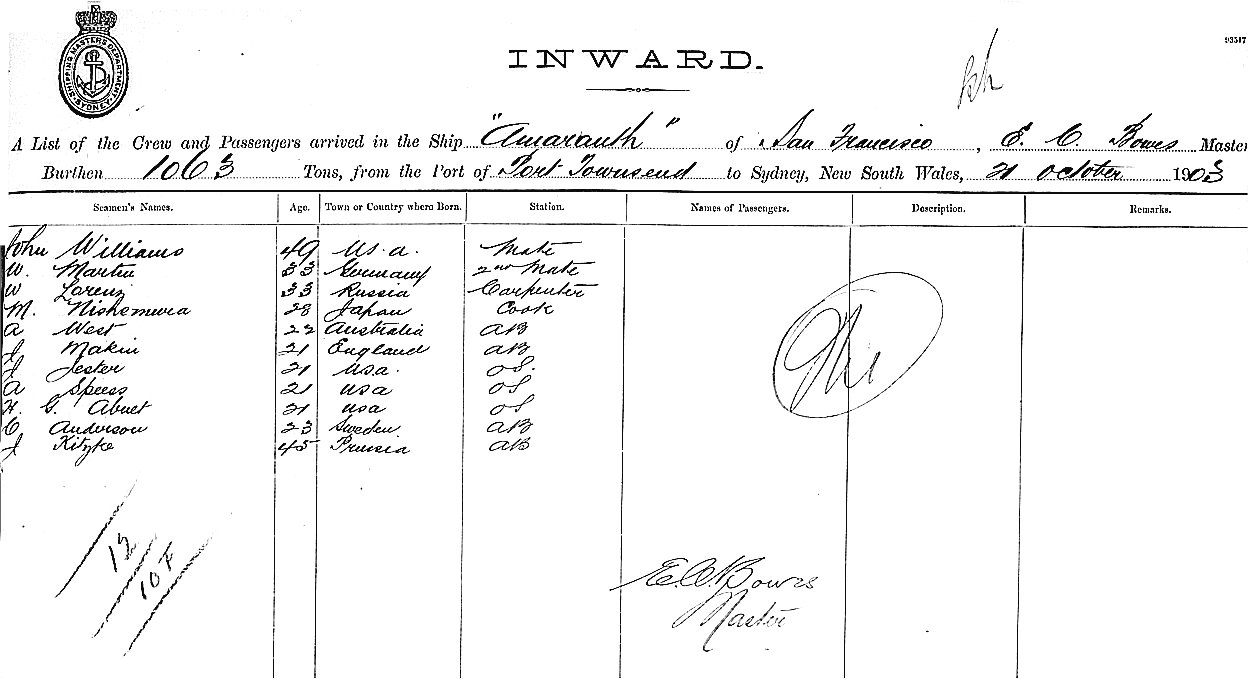 SHIPPING MASTERS DEPARTMENT SYDNEY
93517
INWARD.
A List of the Crew and Passengers arrived in the Ship "Amaranth" of San Francisco, E. C. Bowes Master
Burthen 1063 Tons, from the Port of Port Townsend to Sydney, New South Wales, 21 October 1903
Seamen's Names. Age. Town or Country where Born. Station. Names of Passengers. Description. Remarks.
John Williams 49 U.S.a. Mate
W. Martin 33 Germany 2nd Mate
W Lorenz 33 Russia Carpenter
M. Nishemura 28 Japan Cook
A West 22 Australia AB
J Makin 21 England AB
J Jester 21 U.S.a. OS.
A Speess 21 usa OS
H. G. Abuet 21 usa OS
C Anderson 23 Sweden. AB
J Kitzke 45 Prussia AB
12
10 F
E. C. Bowes
Master